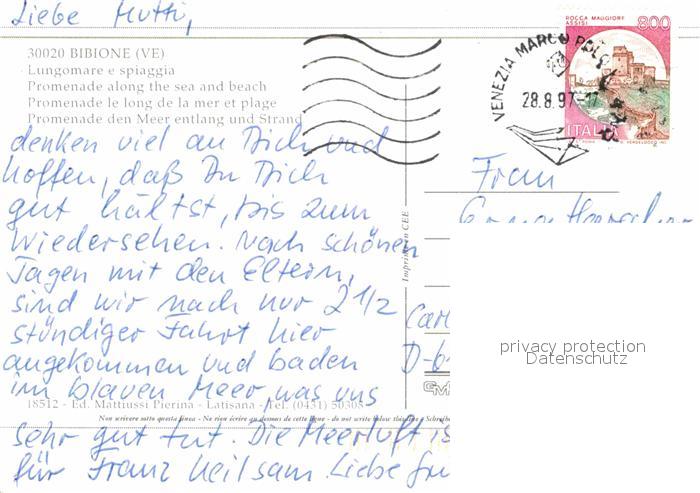 Liebe Mutti,
30020 BIBIONE (VE)
Lungomare e spiaggia
Promenade along the sea and beach
Promenade le long de la mer et plage
Promenade den Meer entlang und Strand
denken viel an Dich und
hoffen, daß Du Dich
gut hältst, bis zum
Wiedersehen. Nach schönen
Tagen mit den Eltern,
sind wir nach nur 2 1/2
stündiger Fahrt hier
angekommen und baden
im blauen Meer, was uns
18512 - Ed. Mattiussi Pierina - Latisana - Tel. (0431) 50305
Non scrivere sotto questa linea - Ne rien écrire au-dessous de cette ligne - do not write below this line - Schreibe
sehr gut tut. Die Meerluft is
für Franz heilsam. Liebe Grü
Imprimerie CEE
VENEZIA MARCO POLO
28.8.97-17
ROCCA MAGGIORE
ASSISI
800
ITALIA
Frau
Carl
D-6
privacy protection
Datenschutz